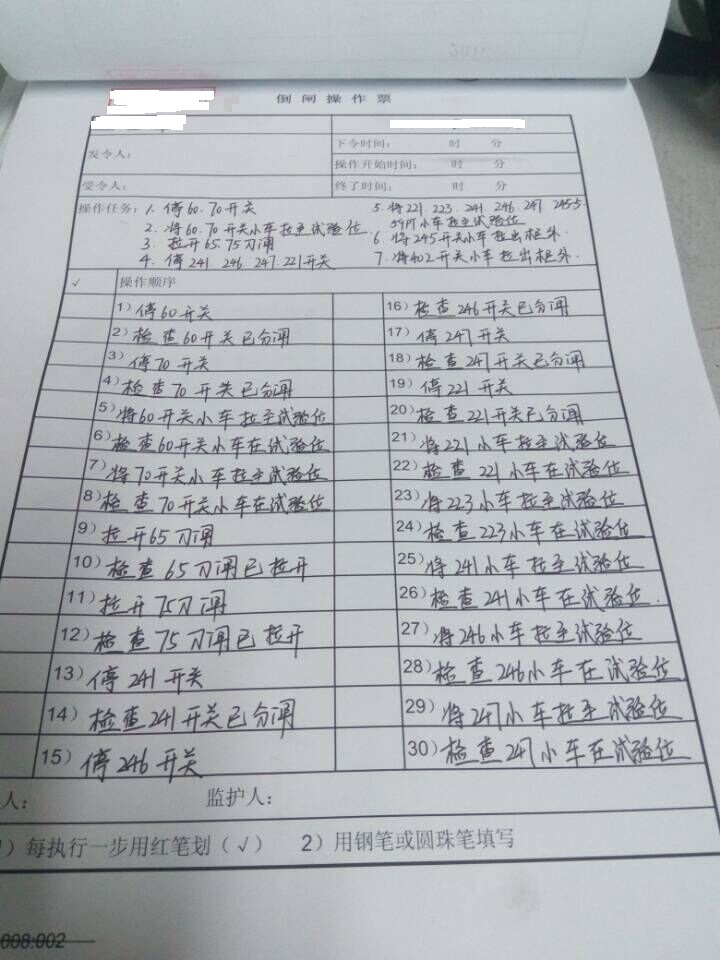 倒闸操作票
发令人：
下令时间： 时 分
操作开始时间： 时 分
受令人：
终了时间： 时 分
操作任务：1. 停60.70开关
2. 将60.70开关小车拉至试验位.
3. 拉开65.75刀闸
4. 停241. 246. 247. 221开关
5. 将221. 223. 241. 246. 247. 245-5
59PT小车拉至试验位
6. 将245开关小车拉出柜外.
7. 将402开关小车拉出柜外.
√ 操作顺序
1）停60开关
2）检查60开关已分闸
3）停70开关
4）检查70开关已分闸
5）将60开关小车拉至试验位
6）检查60开关小车在试验位
7）将70开关小车拉至试验位
8）检查70开关小车在试验位
9）拉开65刀闸
10）检查65刀闸已拉开
11）拉开75刀闸
12）检查75刀闸已拉开
13）停241开关
14）检查241开关已分闸
15）停246开关
16）检查246开关已分闸
17）停247开关
18）检查247开关已分闸
19）停221开关
20）检查221开关已分闸
21）将221小车拉至试验位
22）检查221小车在试验位
23）将223小车拉至试验位
24）检查223小车在试验位
25）将241小车拉至试验位
26）检查241小车在试验位.
27）将246小车拉至试验位
28）检查246小车在试验位
29）将247小车拉至试验位
30）检查247小车在试验位
人： 监护人：
）每执行一步用红笔划（√） 2）用钢笔或圆珠笔填写
008:002